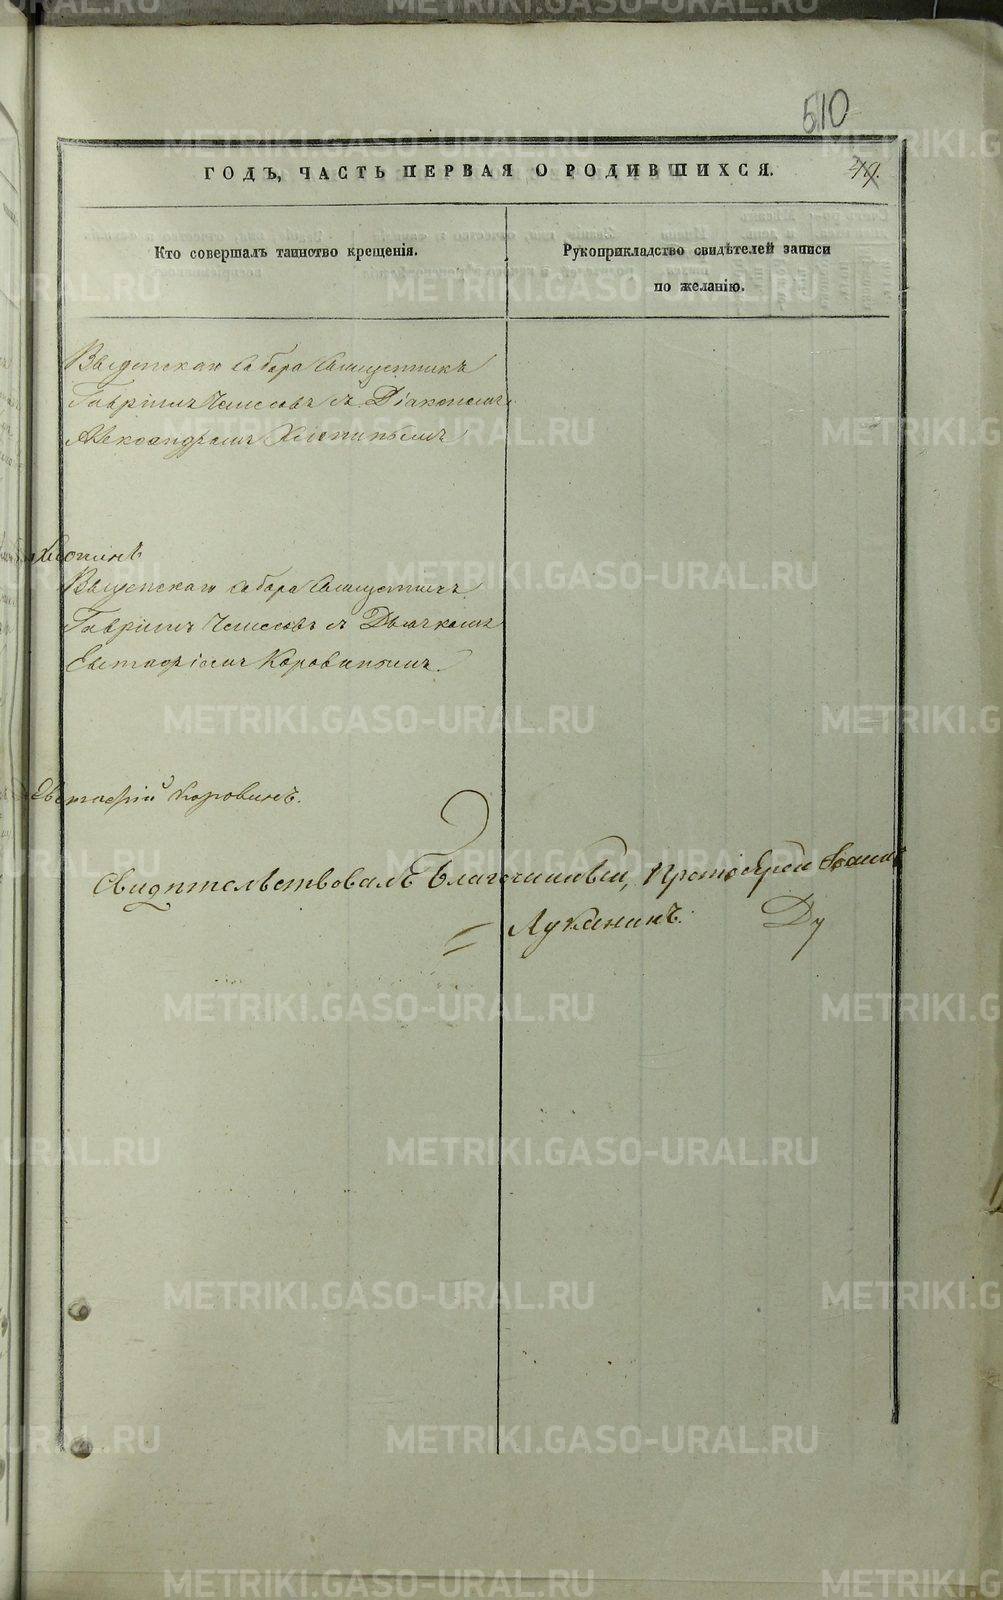 510
ГОДЪ, ЧАСТЬ ПЕРВАЯ О РОДИВШИХСЯ.
49.
Кто совершалъ таинство крещенія.
Рукоприкладство свидѣтелей записи
по желанію.
Введенскаго Собора Священникъ
Гавріилъ Чемесовъ съ Діакономъ
Александромъ Хлопинымъ
Хлопинъ
Введенскаго Собора Священникъ
Гавріилъ Чемесовъ съ Дьячкомъ
Евстафіемъ Коровинымъ.
Евстафій Коровинъ.
Свидѣтельствовалъ Благочинный, Протоіерей Іоаннъ
Луканинъ.
METRIKI.GASO-URAL.RU